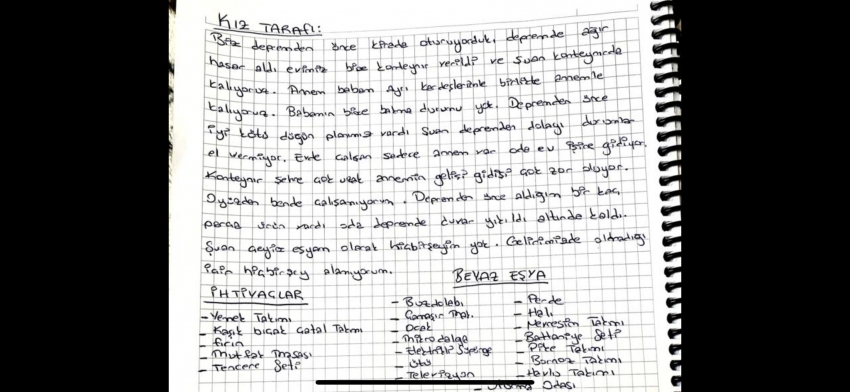 KIZ TARAFI:
Biz depremden önce kirada oturuyorduk, depremde ağır
hasar aldı evimiz bize konteynır verildi ve şuan konteynırda
kalıyoruz. Annem babam ayrı kardeşlerimle birlikte annemle
kalıyoruz. Babamın bize bakma durumu yok. Depremden önce
iyi kötü düğün planımız vardı şuan depremden dolayı durumlar
el vermiyor. Evde çalışan sadece annem var oda ev işine gidiyor.
Konteynır şehre çok uzak annemin gelişi gidişi çok zor oluyor.
Oyüzden bende çalışamıyorum. Depremden önce aldığım bir kaç
parça ürün vardı oda depremde duvar yıkıldı altında kaldı.
Şuan çeyiz eşyam olarak hiçbirşeyim yok. Gelirimizde olmadığı
için hiçbirşey alamıyorum.
İHTİYAÇLAR
- Yemek Takımı
- Kaşık bıçak çatal Takımı
- fırın
- Mutfak masası
- Tencere Seti
BEYAZ EŞYA
- Buzdolabı
- Çamaşır Mak.
- Ocak
- Mikrodalga
- Elektrikli Süpürge
- Ütü
- Televizyon
- Perde
- Halı
- Nevresim Takımı
- Battaniye Seti
- Pike Takımı
- Bornoz Takımı
- Havlu Takımı
- Oturma Odası